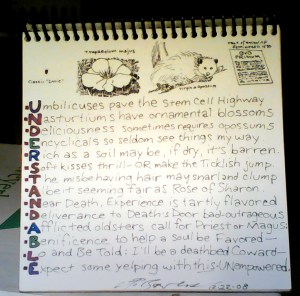 Tropaeolum majus
Virginia opossum
Umbilicuses pave the Stem Cell Highway
Nasturtiums have ornamental blossoms
Deliciousness sometimes requires opossums
Encyclicals so seldom see things my way
Rich as a soil may be, if dry, it's barren.
Safe kisses thrill—OR make the Ticklish jump.
The misbehaving hair may snarl and clump
Albeit seeming fair as Rose of Sharon.
Near Death, Experience is tartly flavored
Deliverance to Death's Door bad-outrageous
Afflicted oldsters call for Priest or Magus
Beneficence to help a soul be Favored—
Lo and Be Told: I'll be a deathbed Coward—
Expect some yelping with this UNempowered.